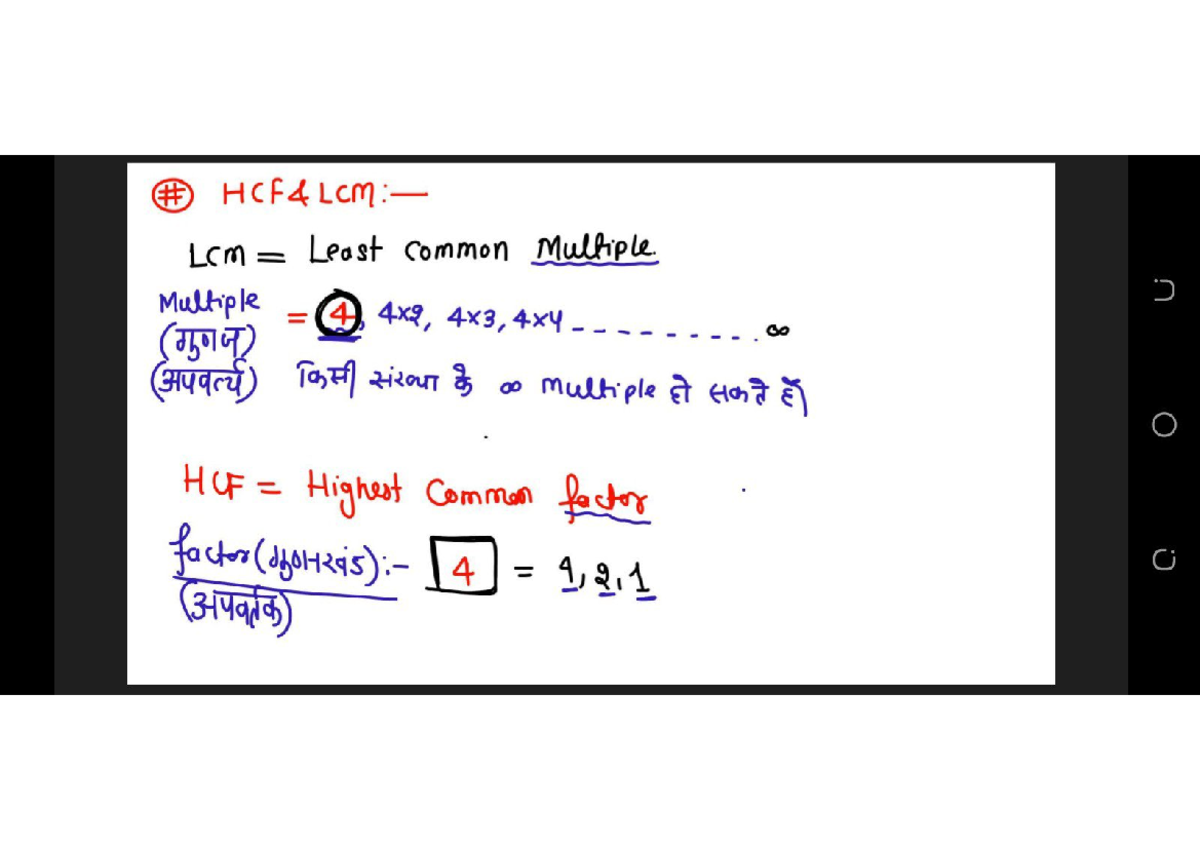 # HCF & LCM :—
LCM = Least Common Multiple.
Multiple = 4, 4×2, 4×3, 4×4 - - - - - - - - - - . ∞
(गुणज)
(अपवर्त्य) किसी संख्या के ∞ multiple हो सकते हैं
HCF = Highest Common factor
factor (गुणनखंड) :- 4 = 4, 2, 1
(अपवर्तक)